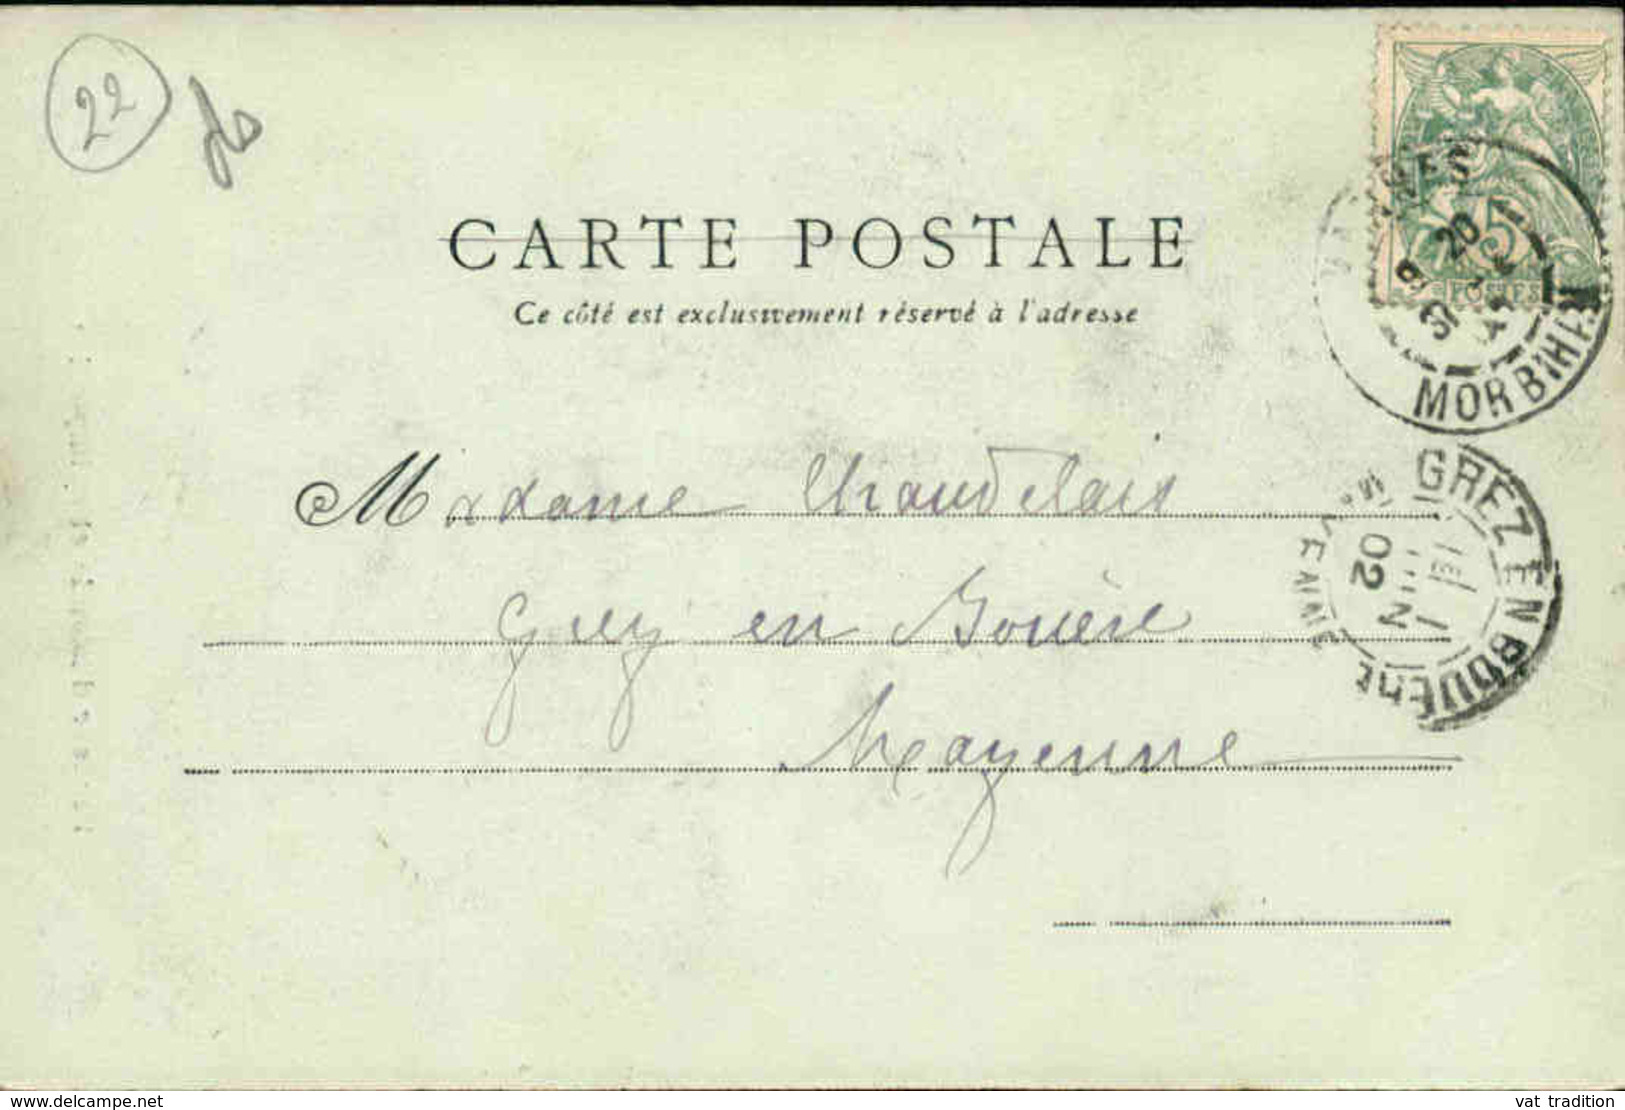 22
CARTE POSTALE
Ce côté est exclusivement réservé à l'adresse
Madame Chaudelais
Grez en Bouère
Mayenne
20
MORBIHAN
5
POSTES
GREZ EN BOUERE
MAYENNE
1
JUIN
02
www.delcampe.net
vat tradition